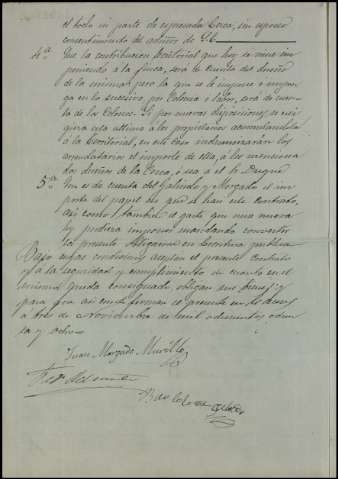 el todo ni parte de espresada Cerca, sin espreso
consentimiento del
4.ª Que la contribucion territorial que hoy se viene im-
poniendo á la finca, será de cuenta del dueño
de la misma; pero la que se le impone ó impon-
ga en lo sucesivo por Colonia ó labor, será de cuen-
ta de los Colonos. Si por nuevas disposiciones se exi-
giera esta última á los propietarios acumulandola
á la territorial, en este caso indemnizarán los
arrendatarios el importe de ella, á los menciona
dos dueños de la Cerca, ó sea á el Sr. Duque
5.ª Que es de cuenta del Galindo y Morgado el im
porte del papel en que se estiende este contrato,
así como tambien el gasto que una nueva
ley pudiera imponer mandando convertir
el presente obligacion en Escritura publica
Bajo estas condiciones aceptan el presente contrato
y á la seguridad y cumplimiento de cuanto en el
mismo queda consignado obligan sus bienes; y
para que así conste firman el presente en
á tres de Noviembre de mil ochocientos ochen
ta y ocho
Juan Morgado Murillo